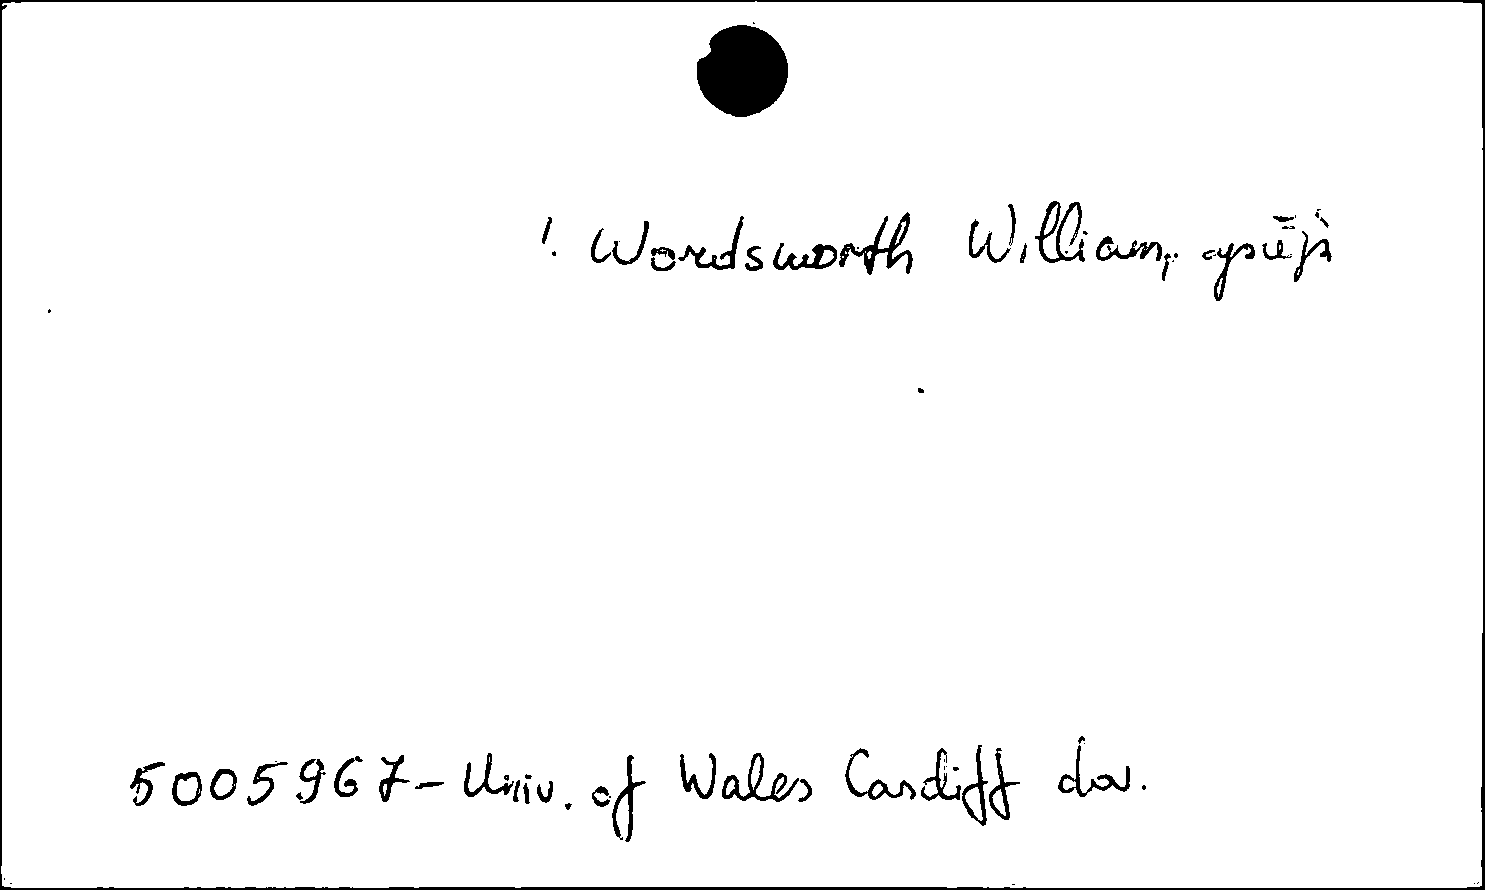 ! Wordsworth William, apie jį
5005967-Univ. of Wales Cardiff dov.